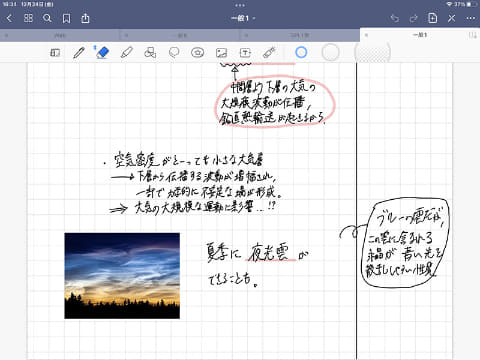 16:31 12月24日(金)
37%
一般1
一般1
中間層より下層の大気の
大規模波動が伝播,
鉛直熱輸送が起きるから.
・空気密度がとっても小さな大気層
→下層から伝播する波動が増幅され,
一部で力学的に不安定な場が形成。
⇒大気の大規模な運動に影響...!?
夏季に夜光雲が
できることも。
ブルーの
この雲に含まれる
氷晶が青い光を
散乱しやすい性質。